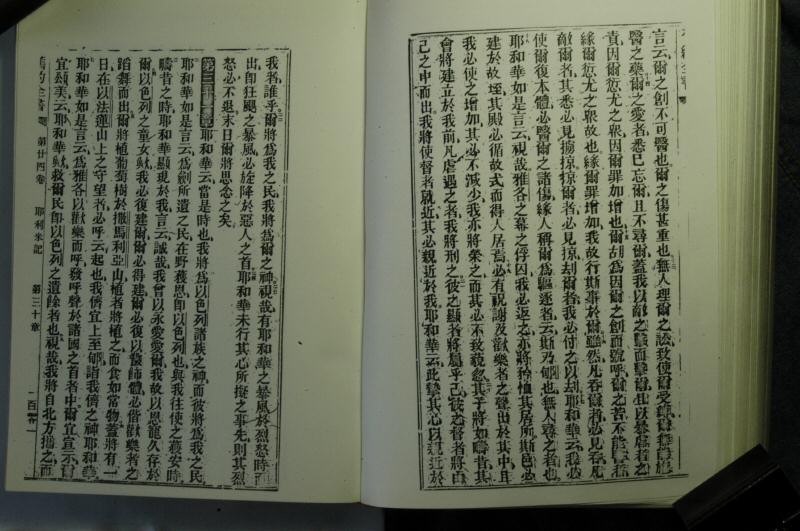 言云爾之創不可醫也爾之傷甚重也無人理爾之訟致使爾受
醫之藥爾之愛者悉已忘爾且不尋爾蓋我以敵之擊而擊爾且以暴虐者之
責因爾愆尤之衆因爾罪加增也爾胡爲因爾之創而號呼爾之苦不能
緣爾愆尤之衆故也緣爾罪增加我故行斯事於爾雖然凡吞爾者必見吞凡
敵爾者其悉必見擄掠爾者必見掠刦爾者我必付之以刦耶和華云我必
使爾復本體必醫爾之諸傷緣人稱爾爲驅逐者云斯乃郇也無人尋之者也
耶和華如是言云視哉雅各之幕之俘囚我必返之亦將矜恤其居所斯邑必
建於故垤其殿必循故式而得人居焉必有祝謝及歡樂者之聲出於其中且
我必使之增加其必不減少我亦將榮之而其必不致藐忽其子將如疇昔其
會將建立於我前凡虐遇之者我將刑之彼之顯者將屬乎己彼之督者將由
己之中而出我將使督者就近其必親近於我耶和華云此擘其心以親近於
我者誰乎爾將爲我之民我將爲爾之神視哉有耶和華之暴風於烈怒時而
出即狂颶之暴風必旋降於惡人之首耶和華未行其心所擬之事先則其烈
怒必不退末日爾將思念之矣
第三十一章 耶和華云當是時也我將爲以色列諸族之神而彼將爲我之民
耶和華如是言云爲劍所遺之民在野獲恩即以色列也與我往使之獲安時
疇昔之時耶和華顯現於我言云誠哉我曾以永愛愛爾我故以恩寵久存於
爾以色列之童女歟我必復建爾爾必得建爾必復以鼗飾體必偕歡樂者之
蹈舞而出爾將植葡萄樹於撒馬利亞山植者將植之而食如常物蓋將有一
日在以法蓮山上之守望者必呼云起也我儕宜上至郇詣我儕之神耶和華
耶和華如是言云爲雅各以歡樂而呼發呼聲於諸國之首者中爾宜宣示
宜頌美云耶和華歟救爾民即以色列之遺餘者也視哉我將自北方攜之而
舊約全書 第廿四卷 耶利米記 第三十章 一百零一